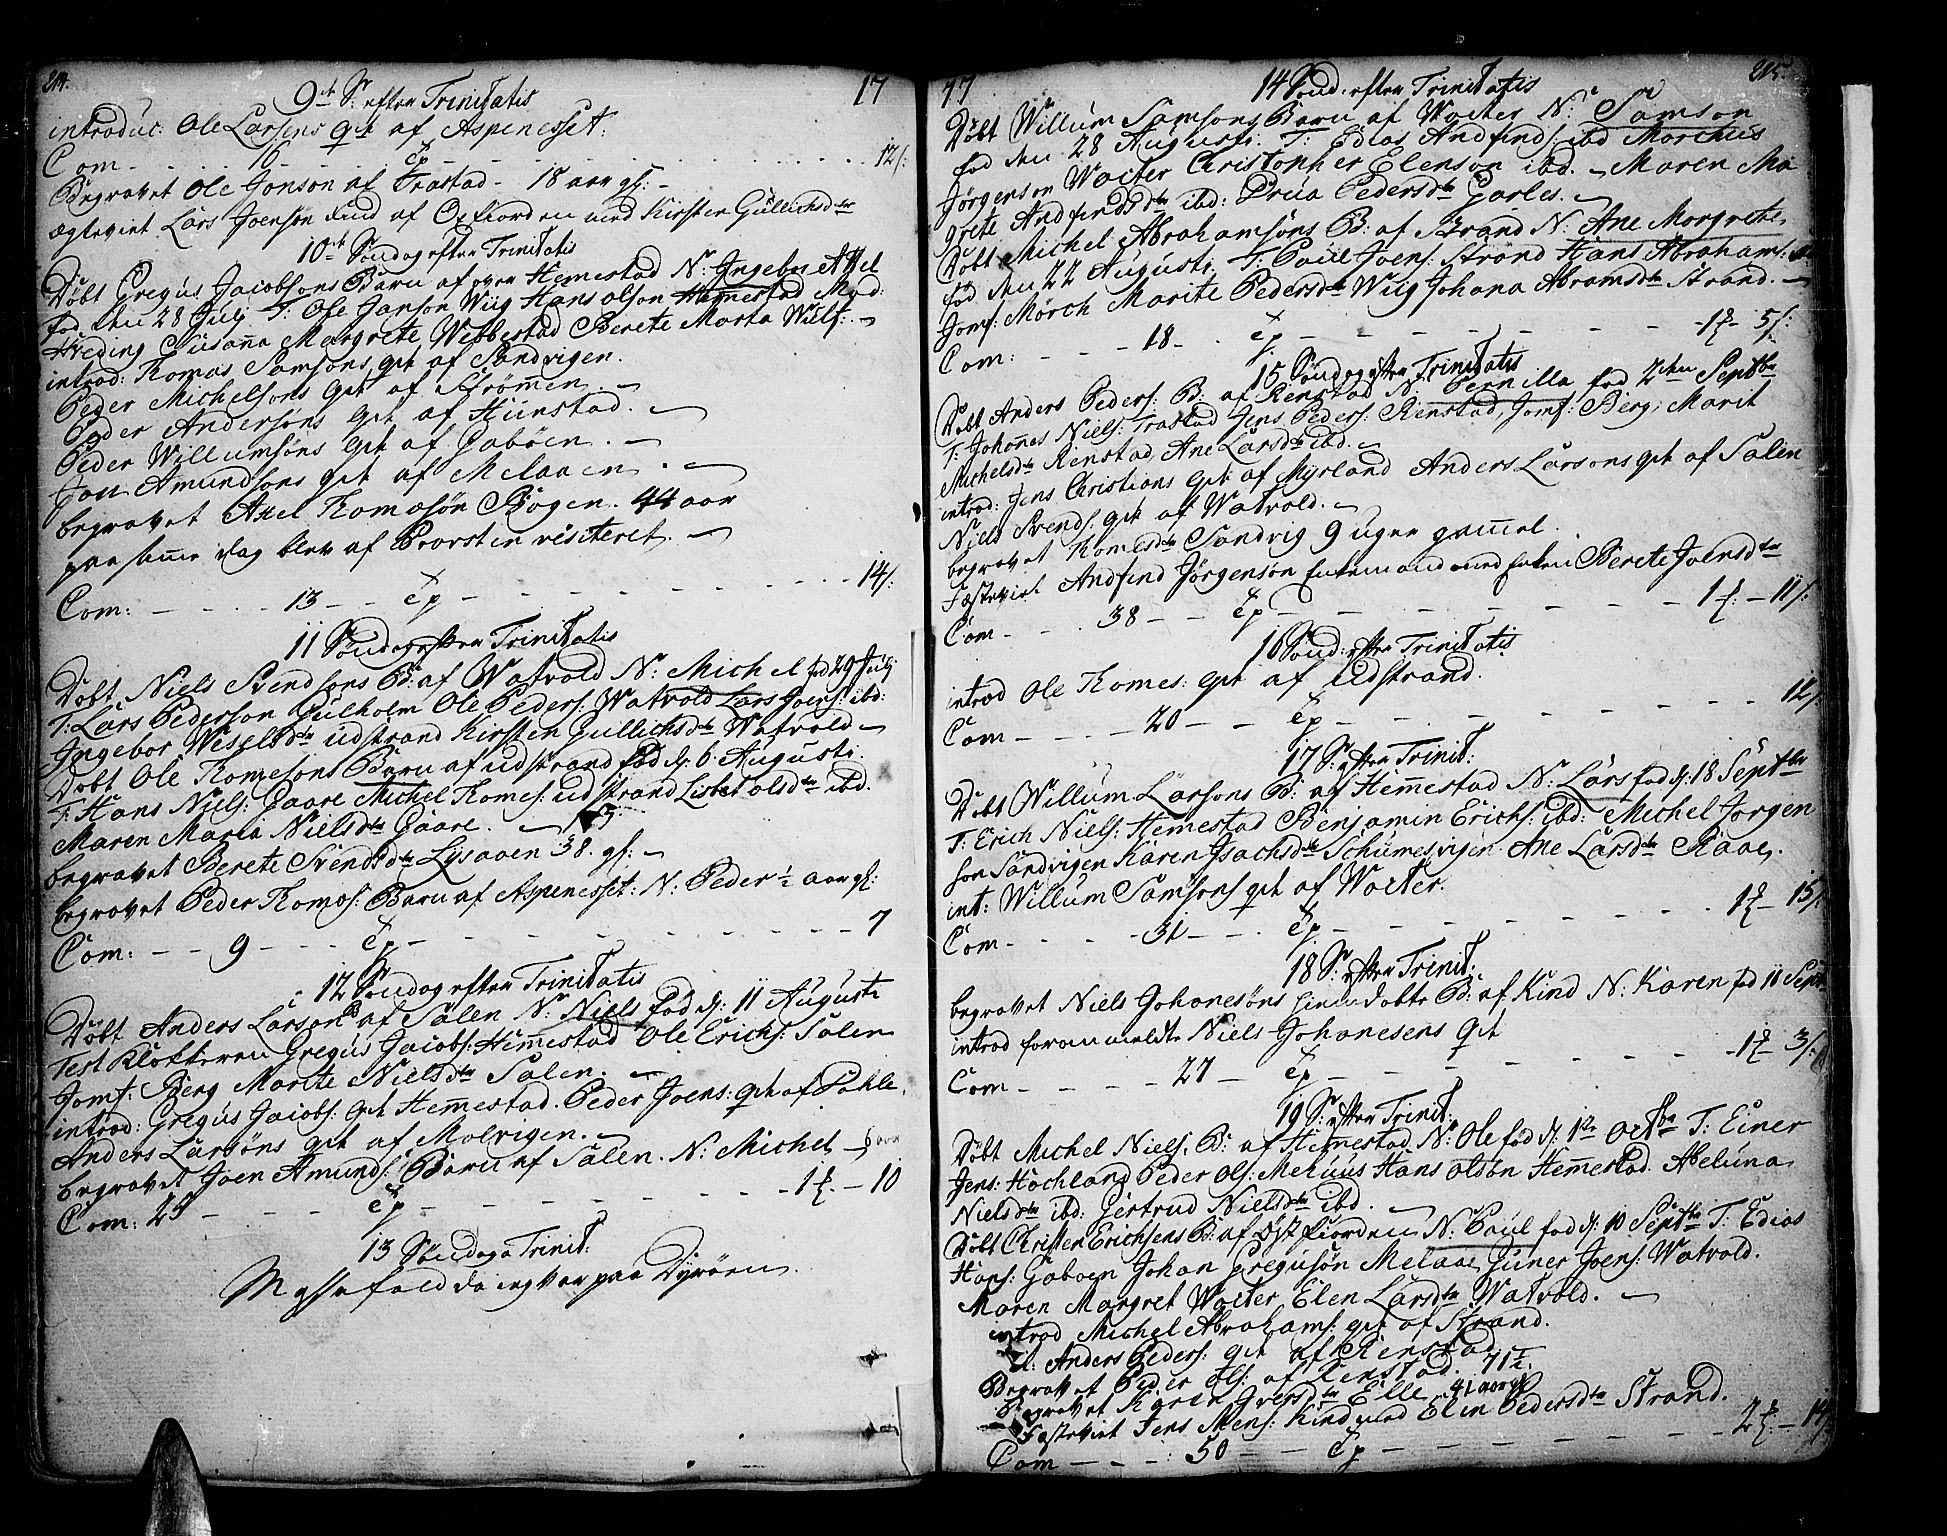 214. 17
9de S: efter Trinitatis
introduc: Ole Larsens qvt af Aspenesset:
Com - - - 16 - - - Ep - - - 12/:
Begravet Ole Jonson af Trastad - 18 aar gl: -
ægteviet Lars Joensøn Lund af Oxfiorden med Kirsten Gullichsdtr
10de Søndag efter Trinitatis
Døbt Gregus Jacobsons Barn af over Hemestad N: Ingebor
fød den 28 Julj T: Ole Janson Wiig Hans olson Hemestad Mad:
Hveding Susanna Margrete Webbestad Berete Marta
introd: Tomas Samsons qvt af Sandvigen.
Peder Michelsons qvt af Strømmen. -
Peder Andersøns qvt af Hunstad. -
Peder Willumsøns qvt af Gaboen. -
Jon Amundsons qvt af Melaaen. -
begravet Axel Tomosøn Bogen. 44 aar
paa samme dag blev af Provsten visiteret. -
Com: - - - 13 - - Ep - - - 14/:
11 Søndag efter Trinitatis
Døbt Niels Svendsons B: af Watvold N: Michel fød 29 Julj
T: Lars Pederson Gulholm Ole Peders: Watvold Lars Joens: ibd:
Ingebor Weselsdtr udstrand Kirsten Gullichsdtr Watvold -
Døbt Ole Tomesons Barn af udstrand fød d: 6 Augusti
T: Hans Niels: Gaare Michel Tomes: udstrand Lisbet olsdtr ibd.
Maren Marta Nielsdtr Gaare. -
begravet Berete Svendsdtr Lysaaen 38. gl: -
begravet Peder Tomos: Barn af Aspenesset: N: Peder ½ aar gl:
Com: - - 9 - - - Ep - - - 7
12 Søndag efter Trinitatis
Døbt Anders Larsons B af Salen N: Niels fød d: 11 Augusti
Test Klokkeren Gregus Jacobs: Hemmestad Ole Erichs: Salen
Jomf: Berg Marite Nielsdtr Salen. -
introd: Gregus Jacobs: qvt Hemmestad. Peder Joens: qvt af
Anders Larsøns qvt af Molvigen. -
begravet Joen Amunds: Barn af Salen. N: Michel -
Com: 25 - - - Ep - - - 1 - 10
13 Søndag Trinit:
Messefald da jeg var paa Dyrøen.
17 215.
14 Sønd: efter Trinitatis
Døbt Willum Samsons Barn af Wolter N: Samson
fød den 28 Augusti. T: Edias Andfinds: ibd Marchus
Jørgenson Wolter Christopher Elenson ibd. - Maren Ma
grete Andfindsdtr ibd: Pedersdtr
Døbt Michel Abrahamsøns B: af Strand N: Ane Morgrete
fød den 22 Augusti. T: Poul Joens: Strand Hans Abrahams:
Jomf: Mörch Marite Pedersdtr Wiig Johana Abramsdtr Strand. -
Com: - - - 18 - - Ep - - - 1 - 5/:
15 Søndag efter Trinitatis
Døbt Anders Peders: B: af Renstad N: Pernilla fød 2den Septbr
T: Johanes Niels: Trastad Jens Peders: Renstad, Jomf: Berg, Marit
Michelsdtr Renstad, Ane Larsdtr ibd. -
introd: Jens Christians qvt af Myrland Anders Larsons qvt af Salen
Niels Svends: qvt af Watvold. -
begravet Tomesdtr Sandvig 9 uger gammel.
Fæsteviet Andfind Jørgensøn Enkemand med Enken Berete Joensdtr
Com - - - 38 - - Ep - - - 1 - 11/:
16 Sønd: efter Trinitatis
introd Ole Tomes: qvt af udstrand.
Com - - - 20 - - Ep - - - 12/:
17 S: efter Trinit:
Døbt Willum Larsons B: af Hemmestad N: Lars fød d: 18 Septbr
T: Erich Niels: Hemestad Benjamin Erichs: ibd: Michel Jorgen
son Sandvigen Karen Isachsdtr Ane Larsdtr
int: Willum Samsons qvt af Wolter.
Com - - - 31 - - - Ep - - - 1 - 15/:
18 S: efter Trinit:
begravet Niels Johanesøns hiemdøbte B: af Kind N: Karen fød 16 Sept
introd foranmeldte Niels Johanesens qvt
Com - - - 27 - Ep - - - 1 - 3/:
19 S: efter Trinit:
Døbt Michel Niels: B: af Hemestad N: Ole fød d: 1ste Octbr T: Einer
Jens: Hochland Peder ols: Hans olson Hemmestad. Abeluna
Nielsdtr ibd: Gertrud Nielsdtr ibd. -
Døbt Christen Erichsens B: af Østfiorden N: Poul fød d: 10 Septbr T: Edias
Hans: Gaboen Johan Gregusøn Melaae, Guner Joens: Watvold.
Maren Margret Wolter Elen Larsdtr Watvold. -
introd Michel Abrahams: qvt af Strand.
it: Anders Peders: qvt af Renstad
Begravet Peder ols: af Renstad. 71½.
Begravet Karen Elle 41 aar gl
Fæsteviet Jens Mons: Kind med Elen Pedersdtr Strand.
Com - - - 50 - - Ep - - - 2 - 14/: